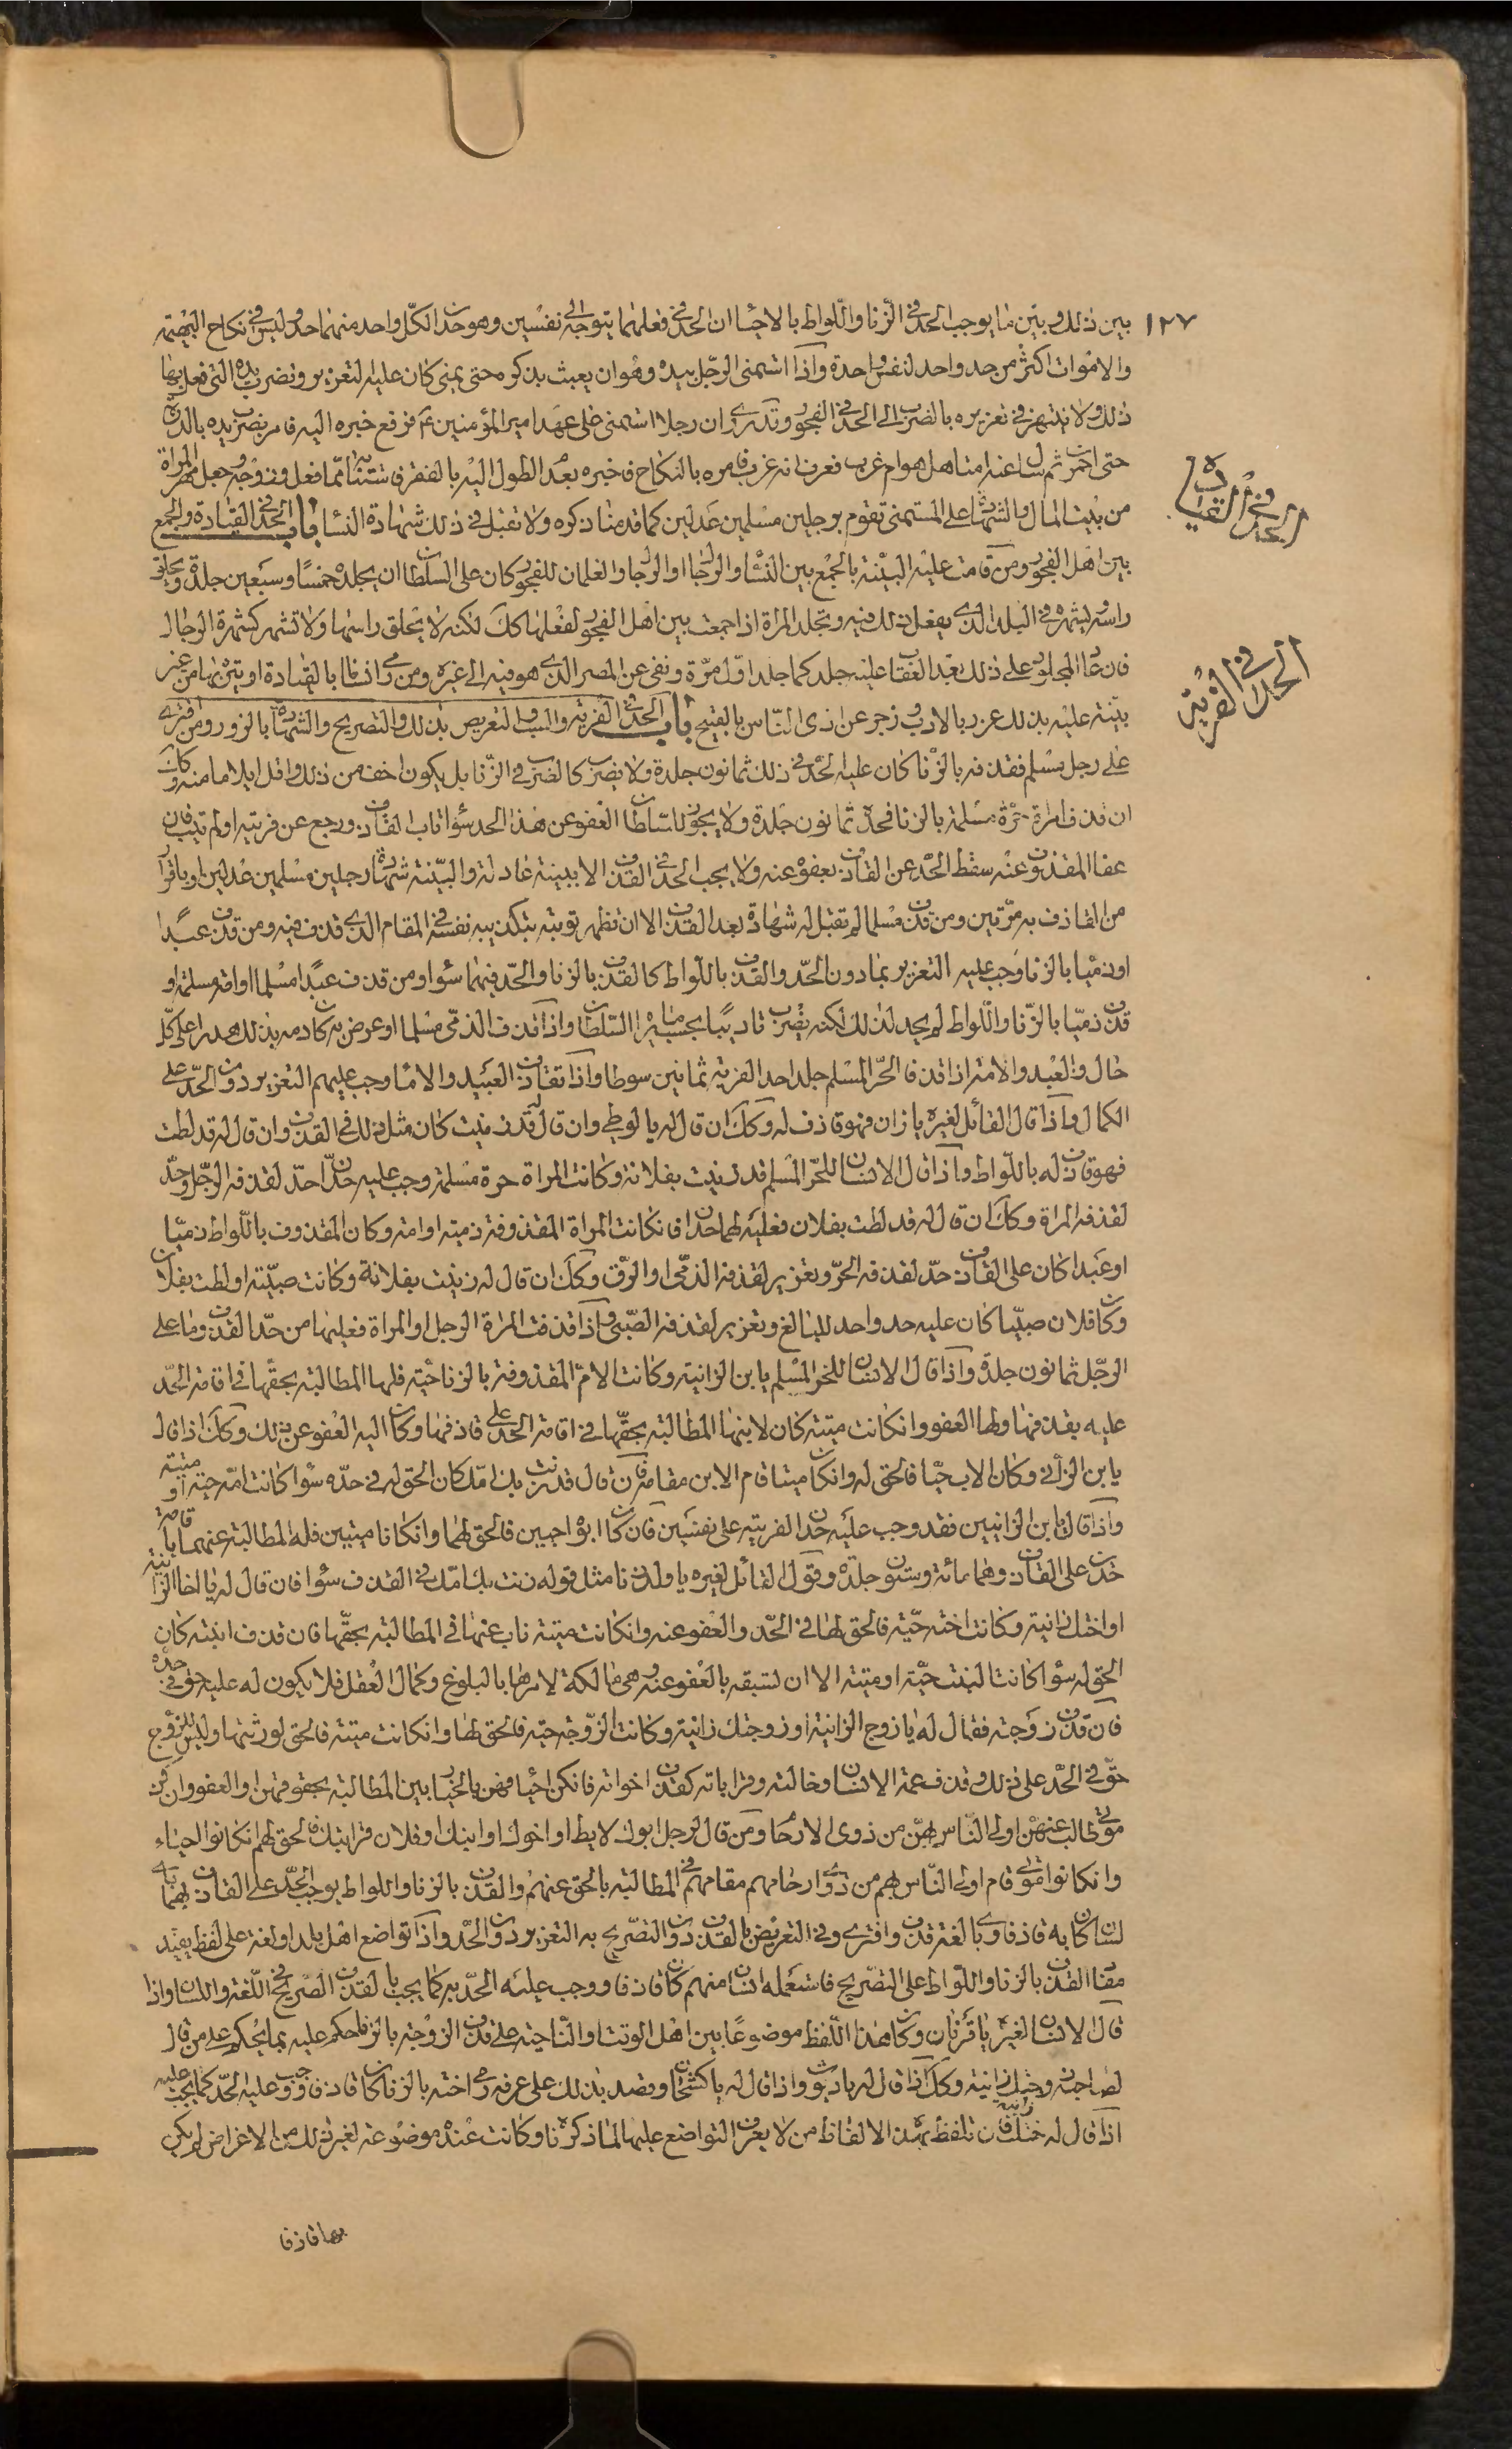 ١٢٧
بين ذلك وبين ما يوجب الحد في الزنا واللواط بالاحيا ان الحد في فعلهما يتوجه الى نفسين وهو حدان لكل واحد منهما حد وليس في نكاح البهيمة
والاموات اكثر من حد واحد لنفس واحدة واذا استمنى الرجل بيده وهو ان يعبث بذكره حتى يمنى كان عليه التعزير وتضرب يده التي فعل بها
ذلك ولا ينتهز في تعزيره بالضرب الى الحد في الفجور وقد روى ان رجلا استمنى على عهد امير المؤمنين ع فرفع خبره اليه فامر بضرب يده بالدرة
حتى احمرت ثم سال عنه امتاهل هو ام عزب فعرف انه عزب فامره بالنكاح فاخبره بعدم الطول اليه بالفقر فاستتابه مما فعل وزوجه وجعل مهر المراة
من بيت المال والشهادة على المستمنى تقوم برجلين مسلمين عدلين كما قدمنا ذكره ولا تقبل في ذلك شهادة النساء باب الحد في القيادة والجمع
بين اهل الفجور ومن قامت عليه البينة بالجمع بين النساء والرجال او الرجال والغلمان للفجور كان على السلطان ان يجلده خمسا وسبعين جلدة ويحلق
راسه ويشهره في البلد الذي يفعل ذلك فيه وتجلد المراة اذا جمعت بين اهل الفجور لفعلها كك لكنه لا يحلق راسها ولا تشهر كشهرة الرجال
فان عاد المجلود على ذلك بعد العقاب عليه جلد كما جلد اول مرة ونفى عن المصر الذي هو فيه الى غيره ومن رمى انسانا بالقيادة او بتهمة بها من غير
بينة عليه بذلك عزر بالادب وزجر عن اذى الناس بالقبيح باب الحد في الفرية والسب والتعريض بذلك والتصريح والشهادة بالزور ومن افترى
على رجل مسلم فقذفه بالزنا كان عليه الحد في ذلك ثمانون جلدة ولا يضرب كالضرب في الزنا بل يكون اخف من ذلك واقل ايلاما منه وكك
ان قذف امراة حرة مسلمة بالزنا فحده ثمانون جلدة ولا يجوز للسلطان العفو عن هذا الحد سواء تاب القاذف ورجع عن فريته او لم يتب فان
عفا المقذوف عنه سقط الحد عن القاذف بعفوه عنه ولا يجب الحد في القذف الا ببينة عادلة والبينة شهادة رجلين مسلمين عدلين او باقرار
من القاذف به مرتين ومن قذف مسلما لم تقبل له شهادة بعد القذف الا ان تظهر توبته بتكذيبه نفسه في المقام الذي قذف فيه ومن قذف عبدا
او ذميا بالزنا وجب عليه التعزير بما دون الحد والقذف باللواط كالقذف بالزنا والحد فيهما سواء ومن قذف عبدا مسلما او امة مسلمة او
قذف ذميا بالزنا واللواط لم يحد لذلك لكنه يضرب تاديبا بحسب ما يراه السلطان واذا قذف الذمي مسلما او عرض به كان دمه بذلك هدرا على كل
حال والعبد والامة اذا قذفا الحر المسلم جلدا حد الفرية ثمانين سوطا واذا تقاذف العبيد والاماء وجب عليهم التعزير دون الحد على
الكمال واذا قال القائل لغيره يا زان فهو قاذف له وكك ان قال له يا لوطي وان قال له قد زنيت كان مثل ذلك في القذف وان قال له قد لطت
فهو قاذف له باللواط واذا قال الانسان للحر المسلم قد زنيت بفلانة وكانت المراة حرة مسلمة وجب عليه حدان احد لقذفه الرجل وحد
لقذفه المراة وكك ان قال له قد لطت بفلان فعليه لهما حدان فان كانت المراة المقذوفة ذمية او امة وكان المقذوف باللواط ذميا
او عبدا كان على القاذف حد لقذفه الحر وتعزير لقذفه الذمي او الرق وكك ان قال له زنيت بفلانة وكانت صبية او لطت بفلان
وكان فلان صبيا كان عليه حد واحد للبالغ وتعزير لقذفه الصبي واذا قذفت المراة الرجل او المراة فعليها من حد القذف ما على
الرجل ثمانون جلدة واذا قال الانسان للحر المسلم يا بن الزانية وكانت الام المقذوفة بالزنا حية فلها المطالبة بحقها في اقامة الحد
عليه بقذفها ولها العفو وان كانت ميتة كان لابنها المطالبة بحقها في اقامة الحد على قاذفها وكان اليه العفو عن ذلك وكك اذا قال
يا بن الزاني وكان الاب حيا فالحق له وان كان ميتا قام الابن مقامه فان قال قد زنت بك امك كان الحق له في حده سواء كانت امه حية او ميتة
واذا قال يا بن الزانيين فقد وجب عليه حدان الفرية على نفسين فان كان ابواه حيين فالحق لهما وان كانا ميتين فله المطالبة عنهما باقامة
حدين على القاذف وهما مائة وستون جلدة وقول القائل لغيره يا ولد زنا مثل قوله زنت بك امك في القذف سواء فان قال له يا اخا الزانية
او اختك زانية وكانت اخته حية فالحق لها في الحد والعفو عنه وان كانت ميتة ناب عنها في المطالبة بحقها فان قذف ابنته كان
الحق له سواء كانت البنت حية او ميتة الا ان تسبقه بالعفو عنه وهي مالكة لامرها بالبلوغ وكمال العقل فلا يكون له عليه حق في حده
فان قذف زوجته فقال له يا زوج الزانية او زوجتك زانية وكانت الزوجة حية فالحق لها وان كانت ميتة فالحق لورثتها وليس للزوج
حق في الحد على ذلك وقذف عمة الانسان وخالته وقراباته كقذف اخواته فان كن احياء فهن بالخيار بين المطالبة بحقوقهن او العفو وان كن
موتى طالب عنهن اولى الناس بهن من ذوى الارحام ومن قال لرجل ابوك لايط او اخوك او ابنك او فلان قرابتك فالحق لهم ان كانوا احياء
وان كانوا امواتا قام اولى الناس بهم من ذوى ارحامهم مقامهم في المطالبة بالحق عنهم والقذف بالزنا واللواط يوجب الحد على القاذف بهما باي
لسان كان به قاذفا وباي لغة قذف وافترى وفي التعريض بالقذف دون التصريح به التعزير دون الحد واذا تواضع اهل بلد او لغة على لفظ يفيد
مفاد القذف بالزنا واللواط على التصريح فاستعمله انسان منهم كان قاذفا ووجب عليه الحد به كما يجب بالقذف الصريح في اللغة واللسان واذا
قال الانسان لغيره يا قرنان وكان هذا اللفظ موضوعا بين اهل الوقت او الناحية على قذف الزوجة بالزنا حكم عليه بما يحكم على من قال
لصاحبه زوجتك زانية وكك اذا قال له يا ديوث واذا قال له يا كشخان وقصد بذلك على عرفه رمى اخته بالزنا كان قاذفا ووجب عليه الحد كما يجب عليه
اذا قال له اختك زانية فان تلفظ بهذه الالفاظ من لا يعرف التواضع عليها لما ذكرناه وكانت عنده موضوعة لغير ذلك من الاغراض لم يكن
بها قاذفا
الحد في القيادة
الحد في الفرية